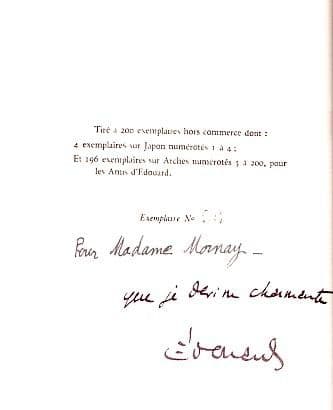 Tiré à 200 exemplaires hors commerce dont :
4 exemplaires sur Japon numérotés 1 à 4 ;
Et 196 exemplaires sur Arches numérotés 5 à 200, pour
les Amis d'Edouard.
Exemplaire No
Pour Madame Mornay —
que je devine charmante
Édouard